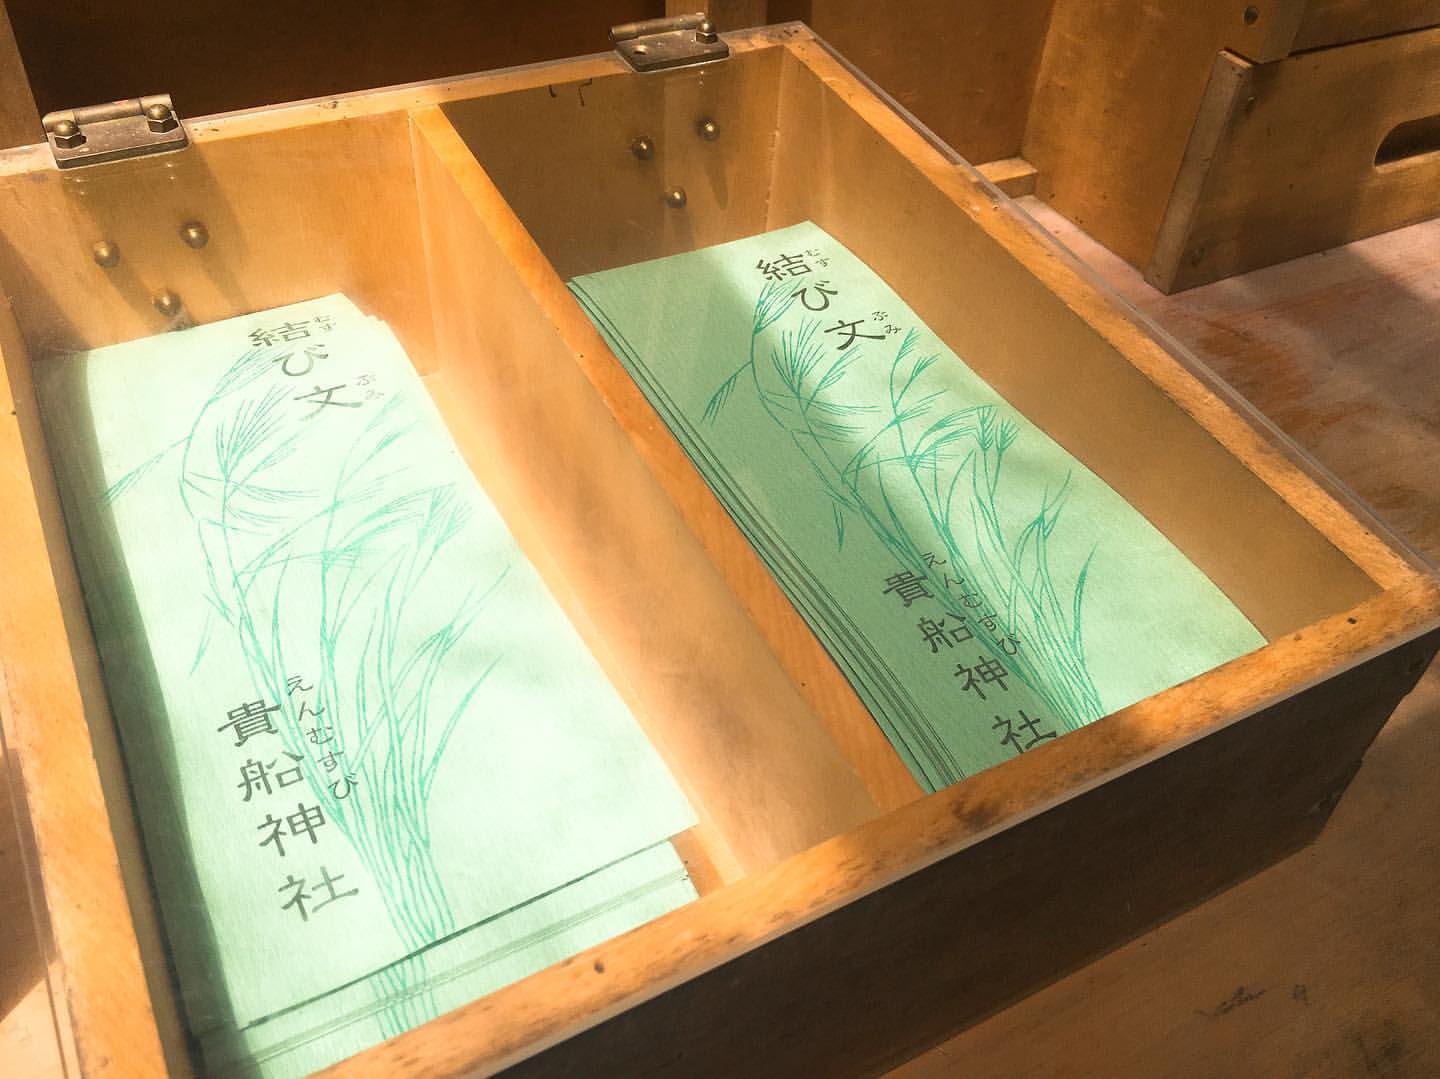 結び文
むす
ぶみ
えんむすび
貴船神社
結び文
むす
ぶみ
えんむすび
貴船神社